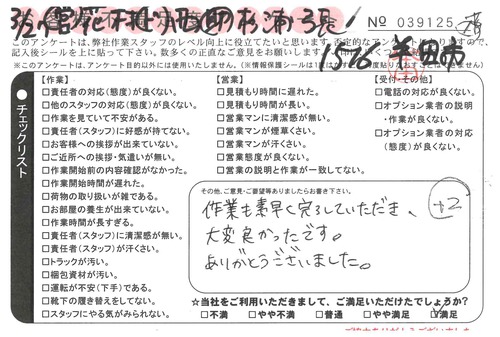 No 039125
このアンケートは、弊社作業スタッフのレベル向上に役立てたいと思います。否定的なアンケートもありますので、
記入後シールを上に貼って下さい。数多くの正直なご意見をお願いいたします。
チェックリスト
【作業】
□責任者の対応(態度)が良くない。
□他のスタッフの対応(態度)が良くない。
□作業を見ていて不安がある。
□責任者(スタッフ)に好感が持てない。
□お客様への挨拶が出来ていない。
□ご近所への挨拶・気遣いが無い。
□作業開始前の内容確認がなかった。
□作業開始時間が遅れた。
□荷物の取り扱いが雑である。
□お部屋の養生が出来ていない。
□作業時間が長すぎる。
□責任者(スタッフ)に清潔感が無い。
□責任者(スタッフ)が汗くさい。
□トラックが汚い。
□梱包資材が汚い。
□運転が不安(下手)である。
□靴下の履き替えをしてない。
□スタッフにやる気がみられない。
【営業】
□見積もり時間に遅れた。
□見積もり時間が長い。
□営業マンに清潔感が無い。
□営業マンが煙草くさい。
□営業マンが汗くさい。
□営業態度が良くない。
□営業の説明と作業が一致してない。
【受付・その他】
□電話の対応が良くない。
□オプション業者の説明
・作業が良くない。
□オプション業者の対応
(態度)が良くない。
その他、ご意見・ご要望等ありましたらお書き下さい。
作業も素早く完了していただき、
大変良かったです。
ありがとうございました。
+2
☆当社をご利用いただきまして、ご満足いただけたでしょうか?
□不満 □やや不満 □普通 □やや満足 □満足